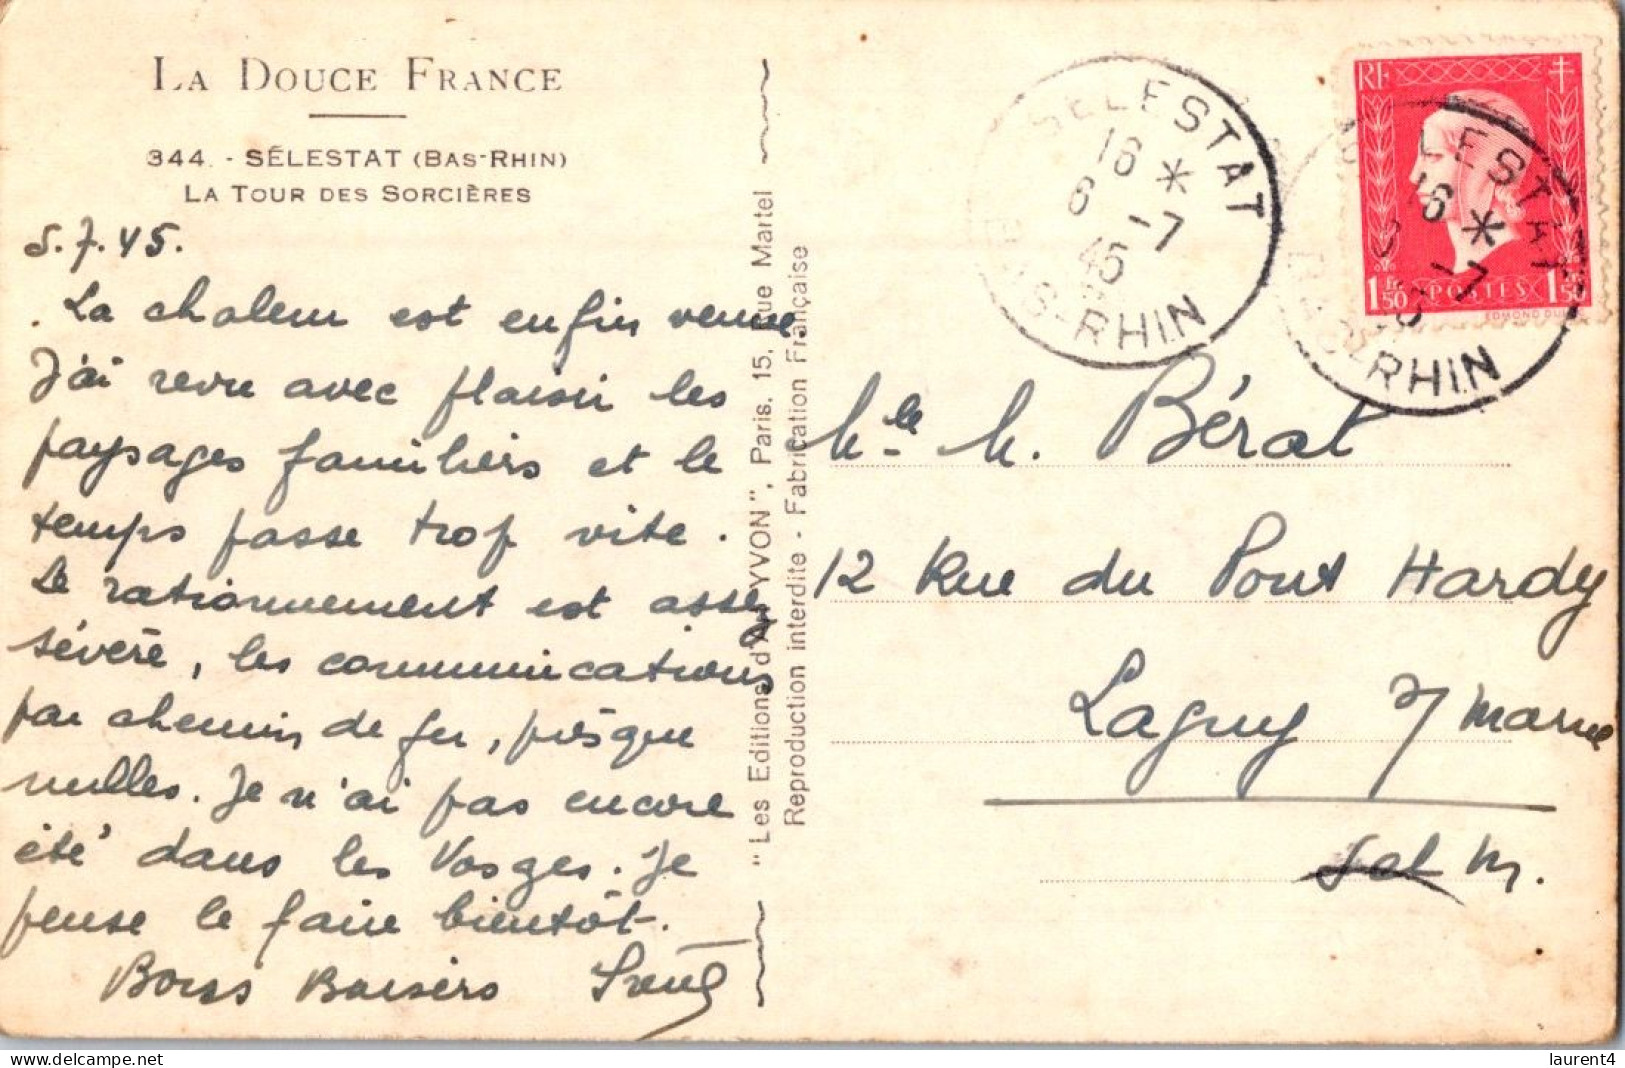 LA DOUCE FRANCE
344. - SÉLESTAT (BAS-RHIN)
LA TOUR DES SORCIÈRES
5.7.45.
La chaleur est enfin venue.
J'ai revu avec plaisir les
paysages familiers et le
temps passe trop vite.
Le rationnement est assez
sévère, les communications
par chemin de fer, presque
nulles. Je n'ai pas encore
été dans les Vosges. Je
pense le faire bientôt.
Bons Baisers
"Les Editions d'Art YVON", Paris, 15, Rue Martel
Reproduction interdite - Fabrication Française
SELESTAT
16 *
6 -7
45
BAS-RHIN
RF
1F50 POSTES 1F50
EDMOND DULAC
LESTAT
16 *
-7
RHIN
Mlle M. Bérat
12 Rue du Pont Hardy
Lagny s/ Marne
S et M.
laurent4